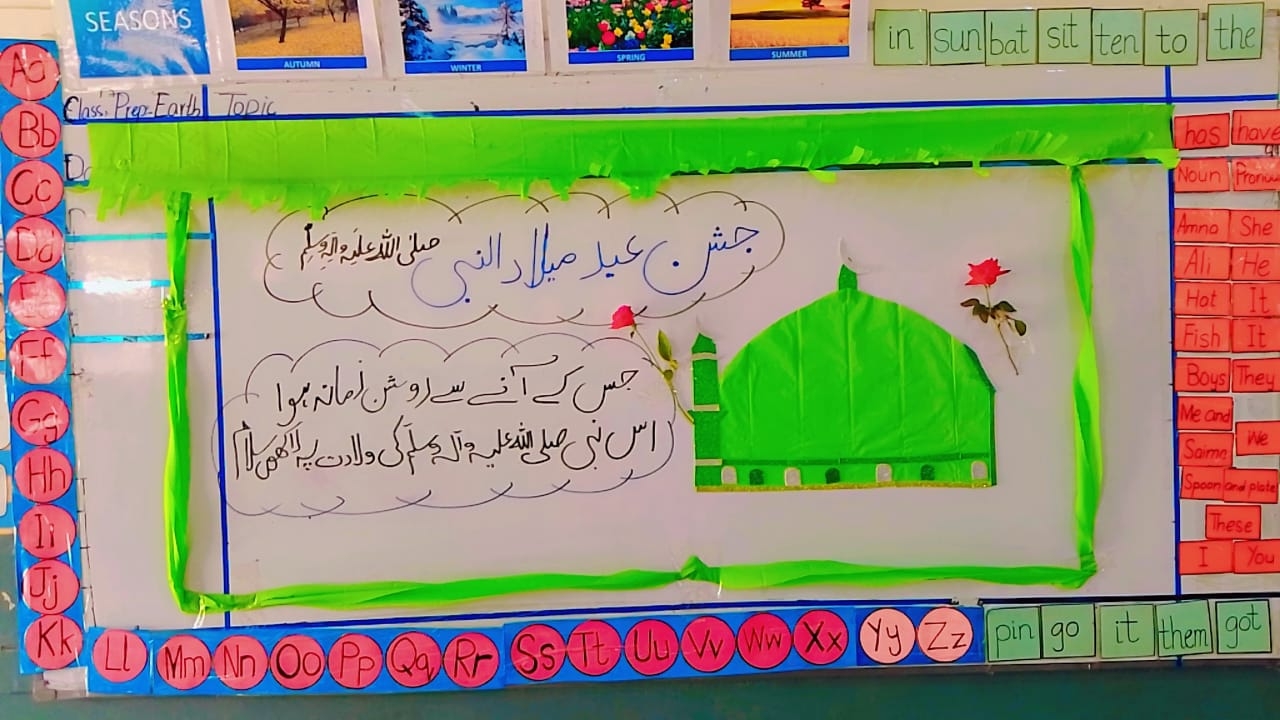 SEASONS
AUTUMN
WINTER
SPRING
SUMMER
in sun bat sit ten to the
Class: Prep-Earth Topic
جشن عید میلاد النبی صلی اللہ علیہ وآلہ وسلم
جس کے آنے سے روشن زمانہ ہوا
اس نبی صلی اللہ علیہ وآلہ وسلم کی ولادت پہ لاکھوں سلام
Aa
Bb
Cc
Dd
Ee
Ff
Gg
Hh
Ii
Jj
Kk
Ll Mm Nn Oo Pp Qq Rr Ss Tt Uu Vv Ww Xx Yy Zz
has have
Noun
Amna She
Ali He
Hat It
Fish It
Boys They
Me and Saima We
Spoon and plate
These
I You
pin go it them got